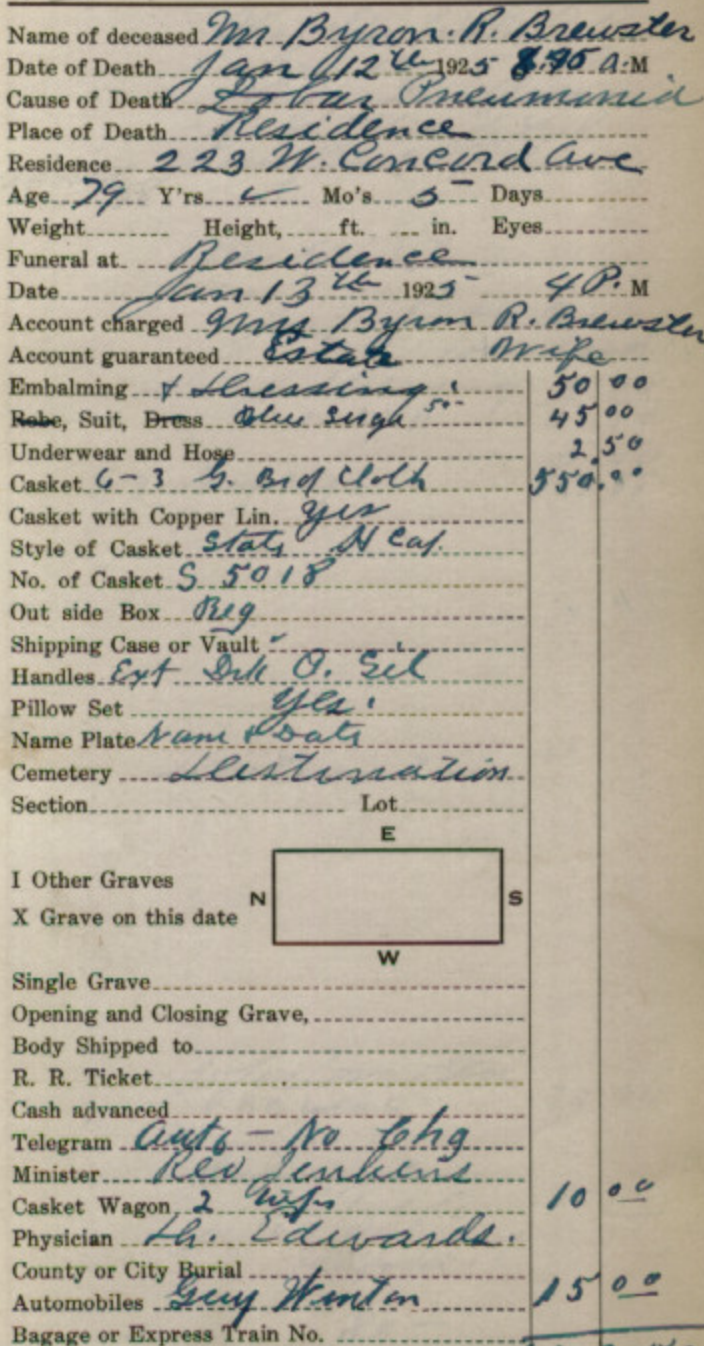 Name of deceased Mr Byron. R. Brewster
Date of Death Jan 12th 1925 A.M
Cause of Death Lobar Pneumonia
Place of Death Residence
Residence 223 W. Concord Ave
Age 79 Y'rs Mo's 5 Days
Weight Height, ft. in. Eyes
Funeral at Residence
Date Jan 13th 1925 4 P. M
Account charged Mrs Byron R. Brewster
Account guaranteed Estate Wife
Embalming & Dressing 50 00
Robe, Suit, Dress Blue Serge 50- 45 00
Underwear and Hose 2.50
Casket 6-3 G. Brd Cloth 550.00
Casket with Copper Lin. yes
Style of Casket State H Cap.
No. of Casket S 5018
Out side Box Reg
Shipping Case or Vault
Handles Ext O. Sil
Pillow Set yes
Name Plate Nam & Date
Cemetery Destination
Section Lot
E
I Other Graves
N S
X Grave on this date
W
Single Grave
Opening and Closing Grave,
Body Shipped to
R. R. Ticket
Cash advanced
Telegram Auto - No Chg
Minister Rev Jenkins
Casket Wagon 2 10 00
Physician Dr. Edwards.
County or City Burial
Automobiles Guy Winton 15 00
Bagage or Express Train No.